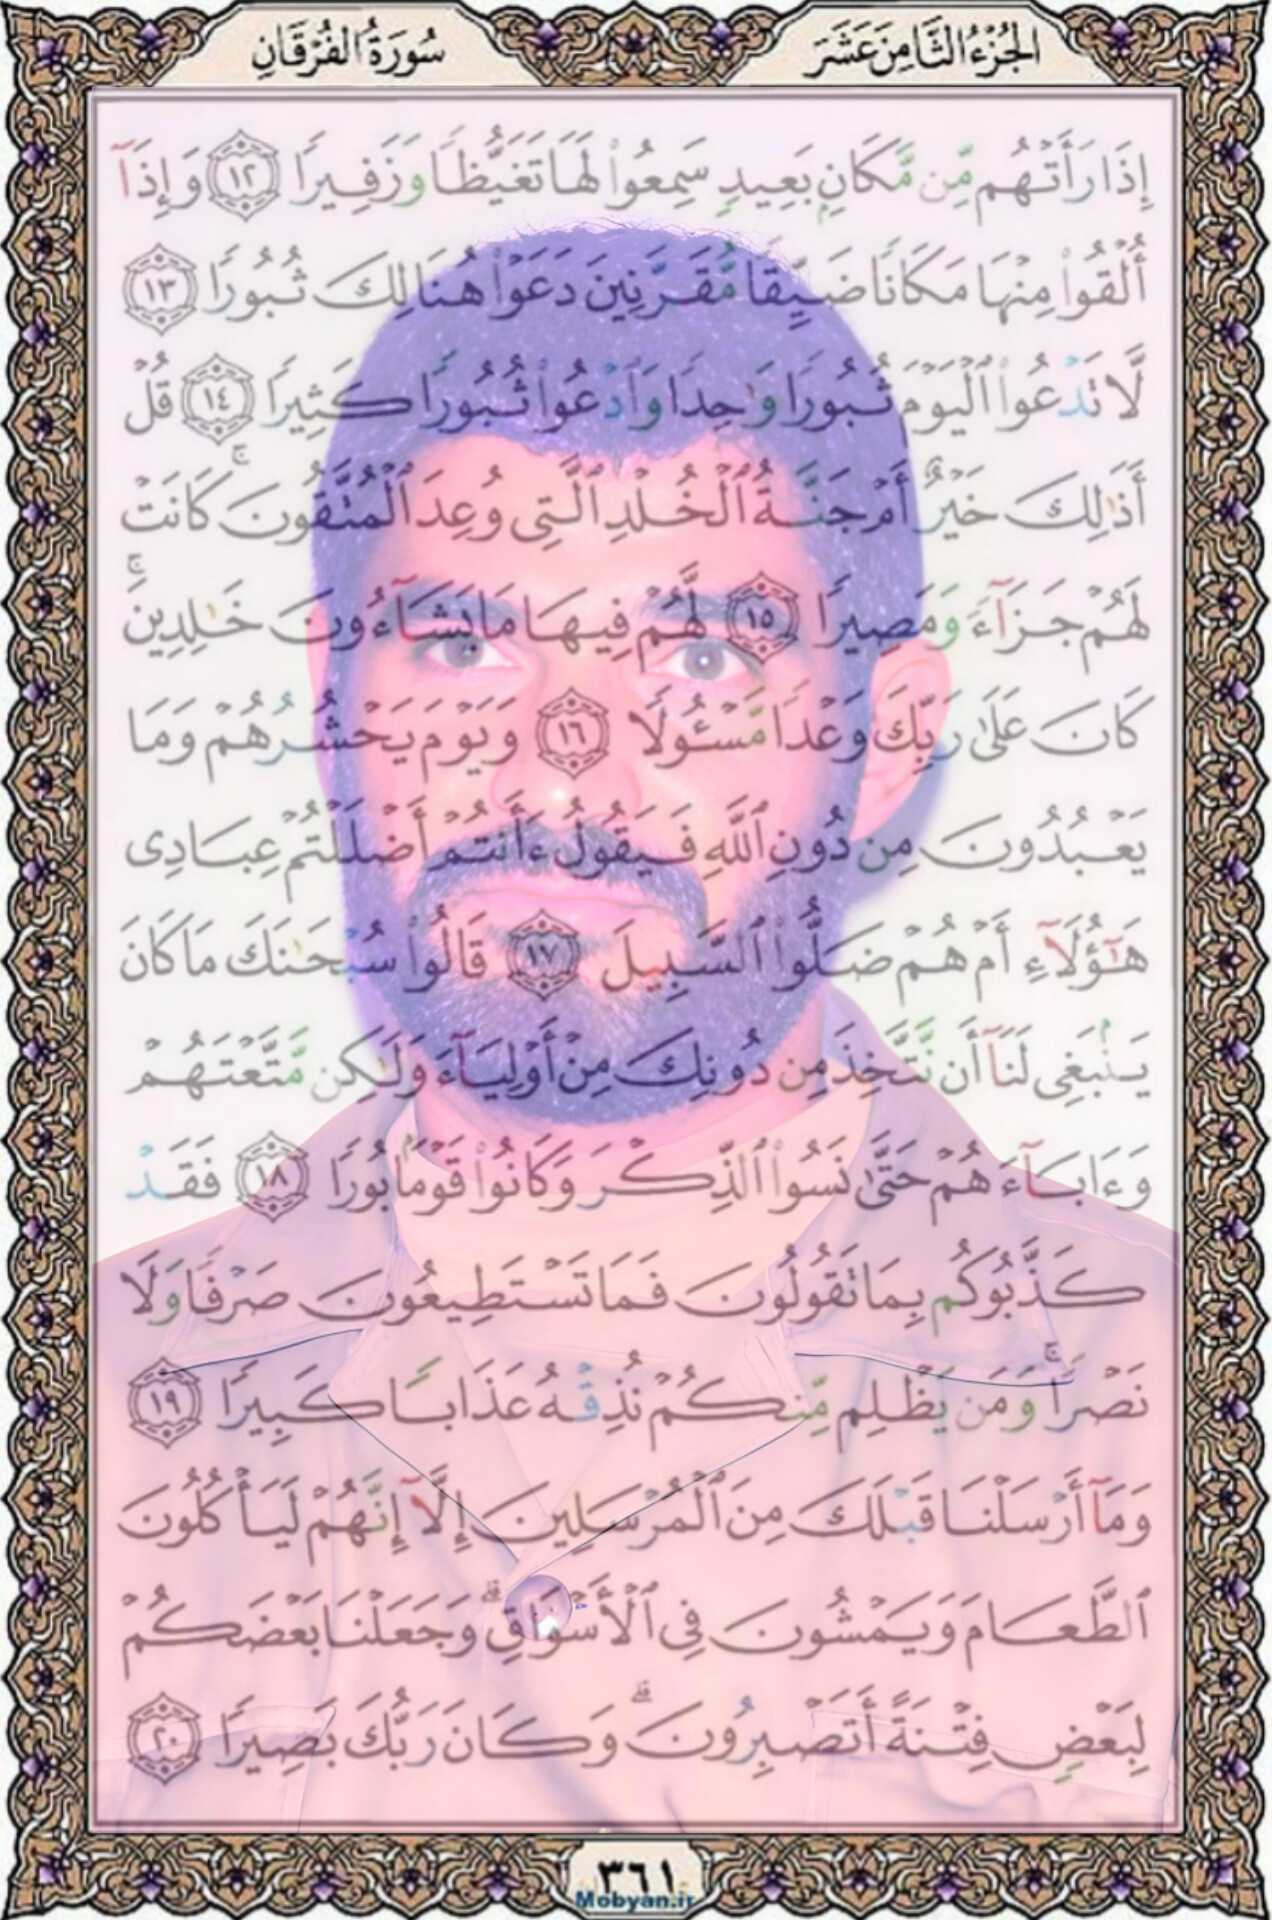 الجُزْءُ الثَّامِنَ عَشَرَ
سُورَةُ الفُرْقَانِ
إِذَا رَأَتْهُم مِّن مَّكَانٍ بَعِيدٍ سَمِعُوا۟ لَهَا تَغَيُّظًا وَزَفِيرًا ١٢ وَإِذَآ
أُلْقُوا۟ مِنْهَا مَكَانًا ضَيِّقًا مُّقَرَّنِينَ دَعَوْا۟ هُنَالِكَ ثُبُورًا ١٣
لَّا تَدْعُوا۟ ٱلْيَوْمَ ثُبُورًا وَٰحِدًا وَٱدْعُوا۟ ثُبُورًا كَثِيرًا ١٤ قُلْ
أَذَٰلِكَ خَيْرٌ أَمْ جَنَّةُ ٱلْخُلْدِ ٱلَّتِى وُعِدَ ٱلْمُتَّقُونَ ۚ كَانَتْ
لَهُمْ جَزَآءً وَمَصِيرًا ١٥ لَّهُمْ فِيهَا مَا يَشَآءُونَ خَٰلِدِينَ ۚ
كَانَ عَلَىٰ رَبِّكَ وَعْدًا مَّسْـُٔولًا ١٦ وَيَوْمَ يَحْشُرُهُمْ وَمَا
يَعْبُدُونَ مِن دُونِ ٱللَّهِ فَيَقُولُ ءَأَنتُمْ أَضْلَلْتُمْ عِبَادِى
هَٰٓؤُلَآءِ أَمْ هُمْ ضَلُّوا۟ ٱلسَّبِيلَ ١٧ قَالُوا۟ سُبْحَٰنَكَ مَا كَانَ
يَنۢبَغِى لَنَآ أَن نَّتَّخِذَ مِن دُونِكَ مِنْ أَوْلِيَآءَ وَلَٰكِن مَّتَّعْتَهُمْ
وَءَابَآءَهُمْ حَتَّىٰ نَسُوا۟ ٱلذِّكْرَ وَكَانُوا۟ قَوْمًۢا بُورًا ١٨ فَقَدْ
كَذَّبُوكُم بِمَا تَقُولُونَ فَمَا تَسْتَطِيعُونَ صَرْفًا وَلَا
نَصْرًا ۚ وَمَن يَظْلِم مِّنكُمْ نُذِقْهُ عَذَابًا كَبِيرًا ١٩
وَمَآ أَرْسَلْنَا قَبْلَكَ مِنَ ٱلْمُرْسَلِينَ إِلَّآ إِنَّهُمْ لَيَأْكُلُونَ
ٱلطَّعَامَ وَيَمْشُونَ فِى ٱلْأَسْوَاقِ ۗ وَجَعَلْنَا بَعْضَكُمْ
لِبَعْضٍ فِتْنَةً أَتَصْبِرُونَ ۗ وَكَانَ رَبُّكَ بَصِيرًا ٢٠
٣٦١
Mobyan.ir